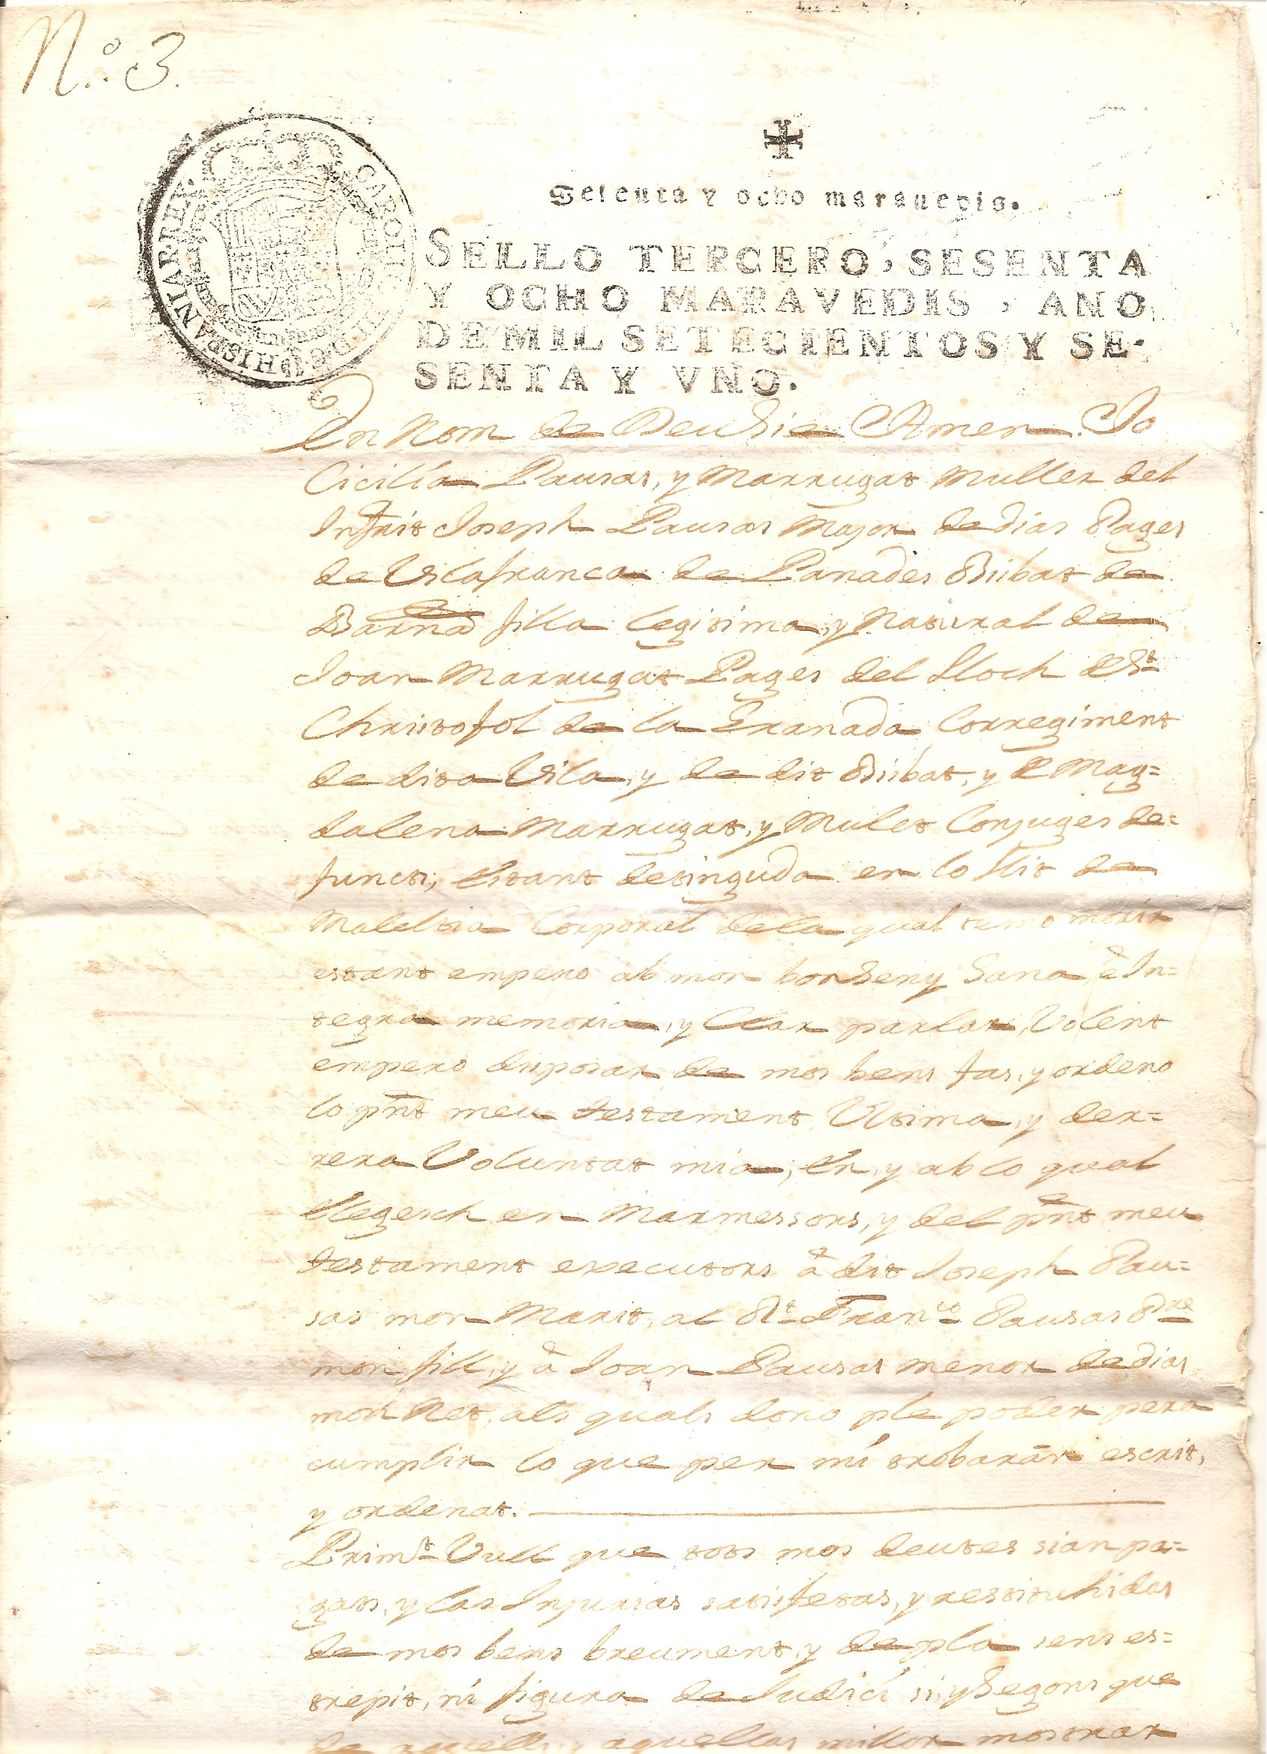 N.º 3.
CAROLUS III D G HISPANIAR REX
Sesenta y ocho maravedis.
SELLO TERCERO, SESENTA
Y OCHO MARAVEDIS, AÑO
DE MIL SETECIENTOS Y SE-
SENTA Y VNO.
En Nom de Deu Sia Amen. Jo
Cicilia Pausas, y Marrugat Muller del
Infrit Joseph Pausas Major de dias Pages
de Vilafranca de Panades Bisbat de
Barna filla legitima, y Natural de
Joan Marrugat Pages del Lloch de St
Christofol de la Granada Corregiment
de dita Vila, y de dit Bisbat, y de Mag=
dalena Marrugat, y Mulet Conjuges de=
functs; Estant detinguda en lo llit de
Malaltia Corporal de la qual temo morir
estant empero ab mon bon Seny Sana è In=
tegra memoria, y Clar parlar, Volent
empero disposar de mos bens fas, y ordeno
lo pñt meu testament Ultima, y der=
rera Voluntat mia; En, y ab lo qual
Elegesch en Marmessors, y del pñt meu
testament executors à dit Joseph Pau=
sas mon Marit, al Rt Franco Pausas Pre
mon fill, y à Joan Pausas menor de dias
mon Net, als quals dono ple poder pera
cumplir lo que per mí trobaràn escrit,
y ordenat.
Primt Vull que tots mos deutes sian pa=
gats, y las Injurias satisfetas, y restituhidas
de mos bens breument, y de pla sens es=
trepit, ní figura de Judicí si, y Segons que
de aquells, y aquellas millor mostrar